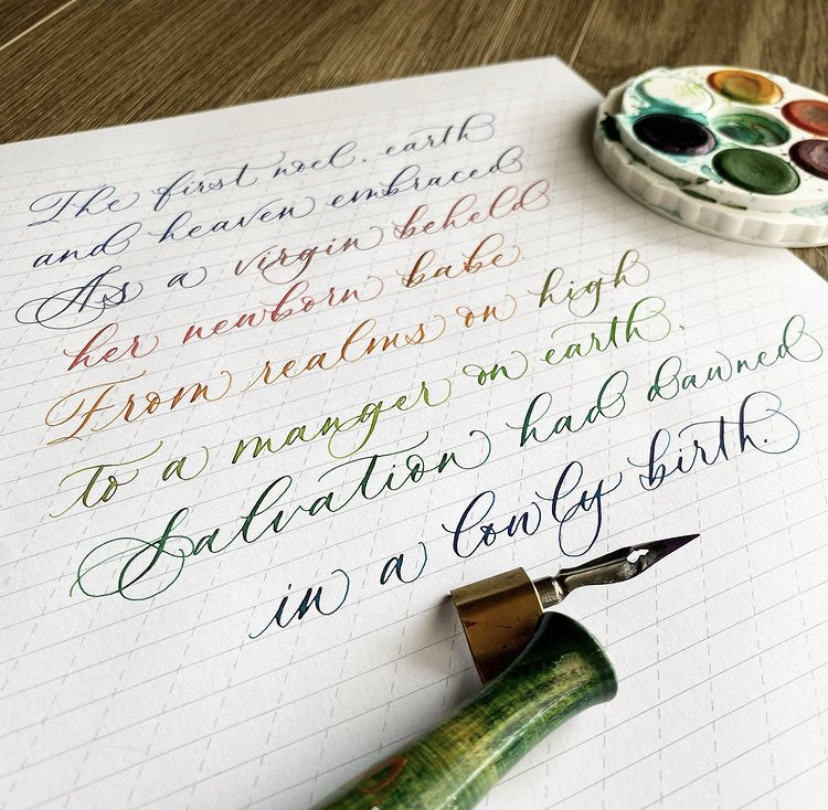 The first noel, earth
and heaven embraced
As a virgin beheld
her newborn babe.
From realms on high
to a manger on earth,
Salvation had dawned
in a lowly birth.